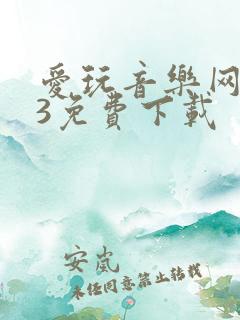 愛玩音樂网
3免費下載
安岚
未经同意禁止转载